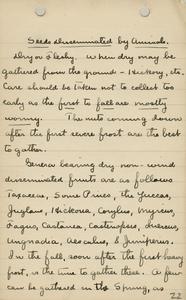 Seeds Disseminated by Animals.
Dry or fleshy. When dry may be
gathered from the ground - Hickory, etc.
Care should be taken not to collect too
early as the first to fall are mostly
wormy. The nuts coming down
after the first severe frost are the best
to gather.
Genera bearing dry non-wind
disseminated fruits are as follows
Taxaceae, Some Pines, the Yuccas,
Juglans, Hickoria, Corylus, Quercus,
Fagus, Castanea, Castanopsis,
Ungnadia, Aesculus, & Juniperus.
In the fall, soon after the first heavy
frost, is the time to gather these. A few
can be gathered in the Spring, as